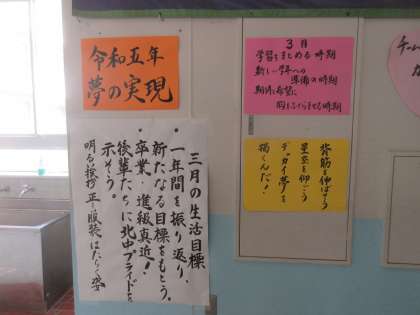 令和五年
夢の実現
3月
学習をまとめる時期
新しい学年への
準備の時期
期待と希望に
胸をふくらませる時期
チーム
背筋を伸ばそう
星空を仰ごう
デッカイ夢を
描くんだ！
三月の生活目標
・一年間を振り返り、
新たなる目標をもとう。
・卒業・進級真近！
後輩たちに北中プライドを
示そう。
明るい挨拶 正しい服装 はたらく姿